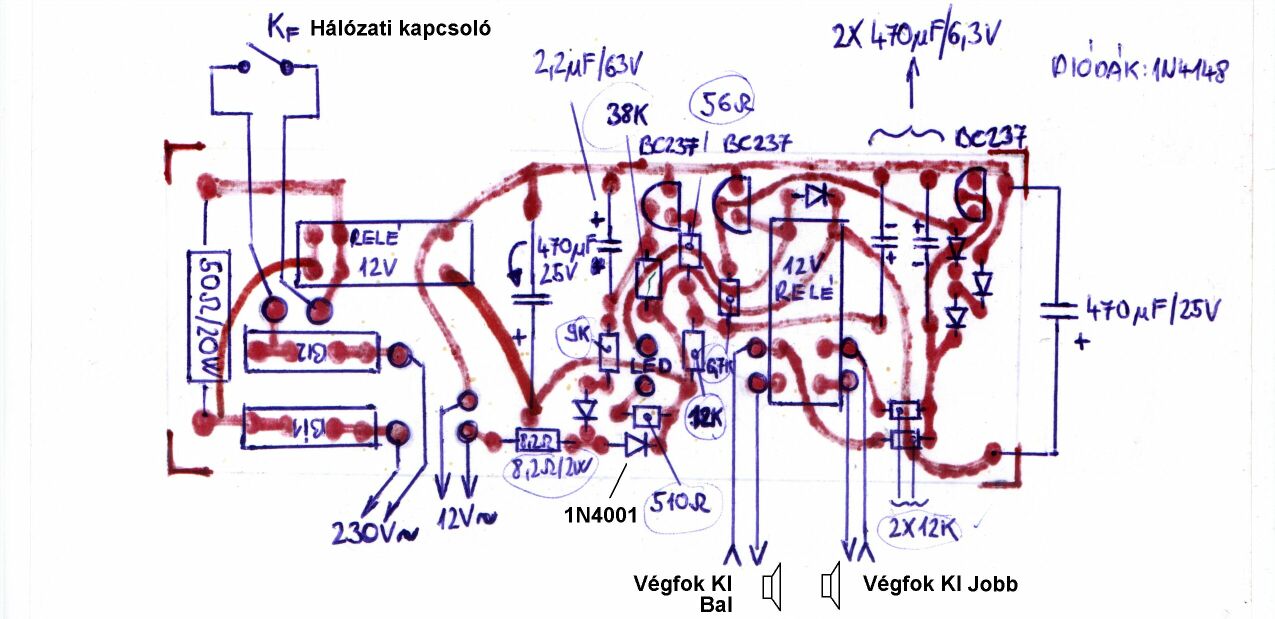 KF Hálózati kapcsoló
2X 470µF/6,3V
DIÓDÁK: 1N4148
2,2µF/63V
38K
56Ω
BC237
BC237
BC237
RELÉ
12V
470µF
25V
12V
RELÉ
50Ω/20W
Bi2
Bi1
9K
LED
12K
470µF/25V
8,2Ω
8,2Ω/2W
510Ω
1N4001
230V~
12V~
2X12K
Végfok KI
Bal
Végfok KI Jobb